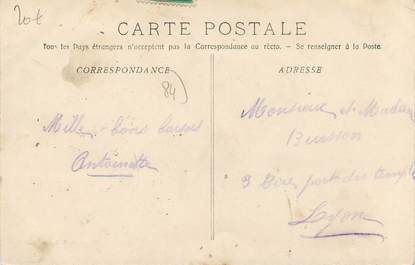 20€
CARTE POSTALE
Tous les Pays étrangers n'acceptent pas la Correspondance au recto. - Se renseigner à la Poste.
CORRESPONDANCE
84
Mille bons baisers
Antoinette
ADRESSE
Monsieur et Madame
Buisson
3 port du temple
Lyon